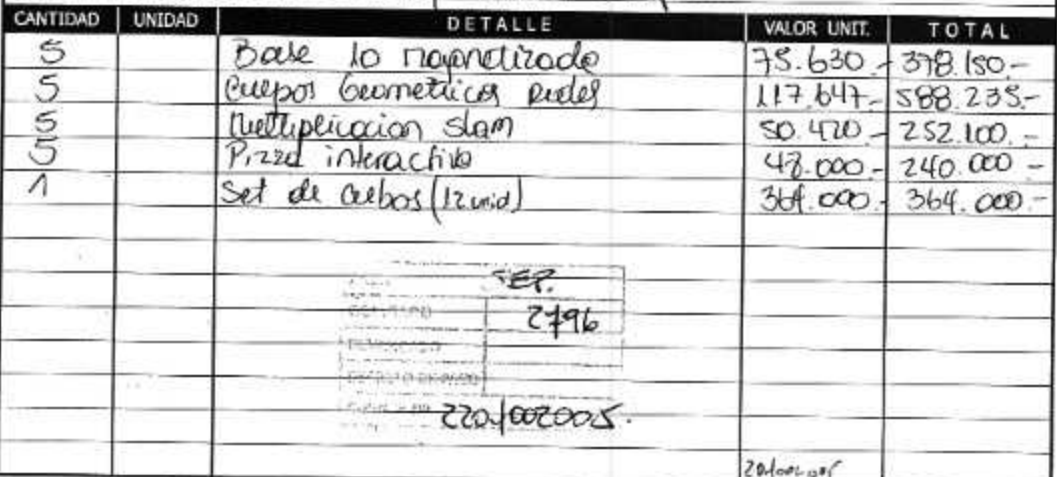 CANTIDAD UNIDAD DETALLE VALOR UNIT. TOTAL
5 Base 10 magnetizado 75.630.- 378.150.-
5 Cuerpos Geometricos redes 117.647- 588.235.-
5 Multiplicacion slam 50.420- 252.100.-
5 Pizza interactiva 48.000- 240.000-
1 Set de cubos (12 unid) 364.000- 364.000-
SEP.
2796